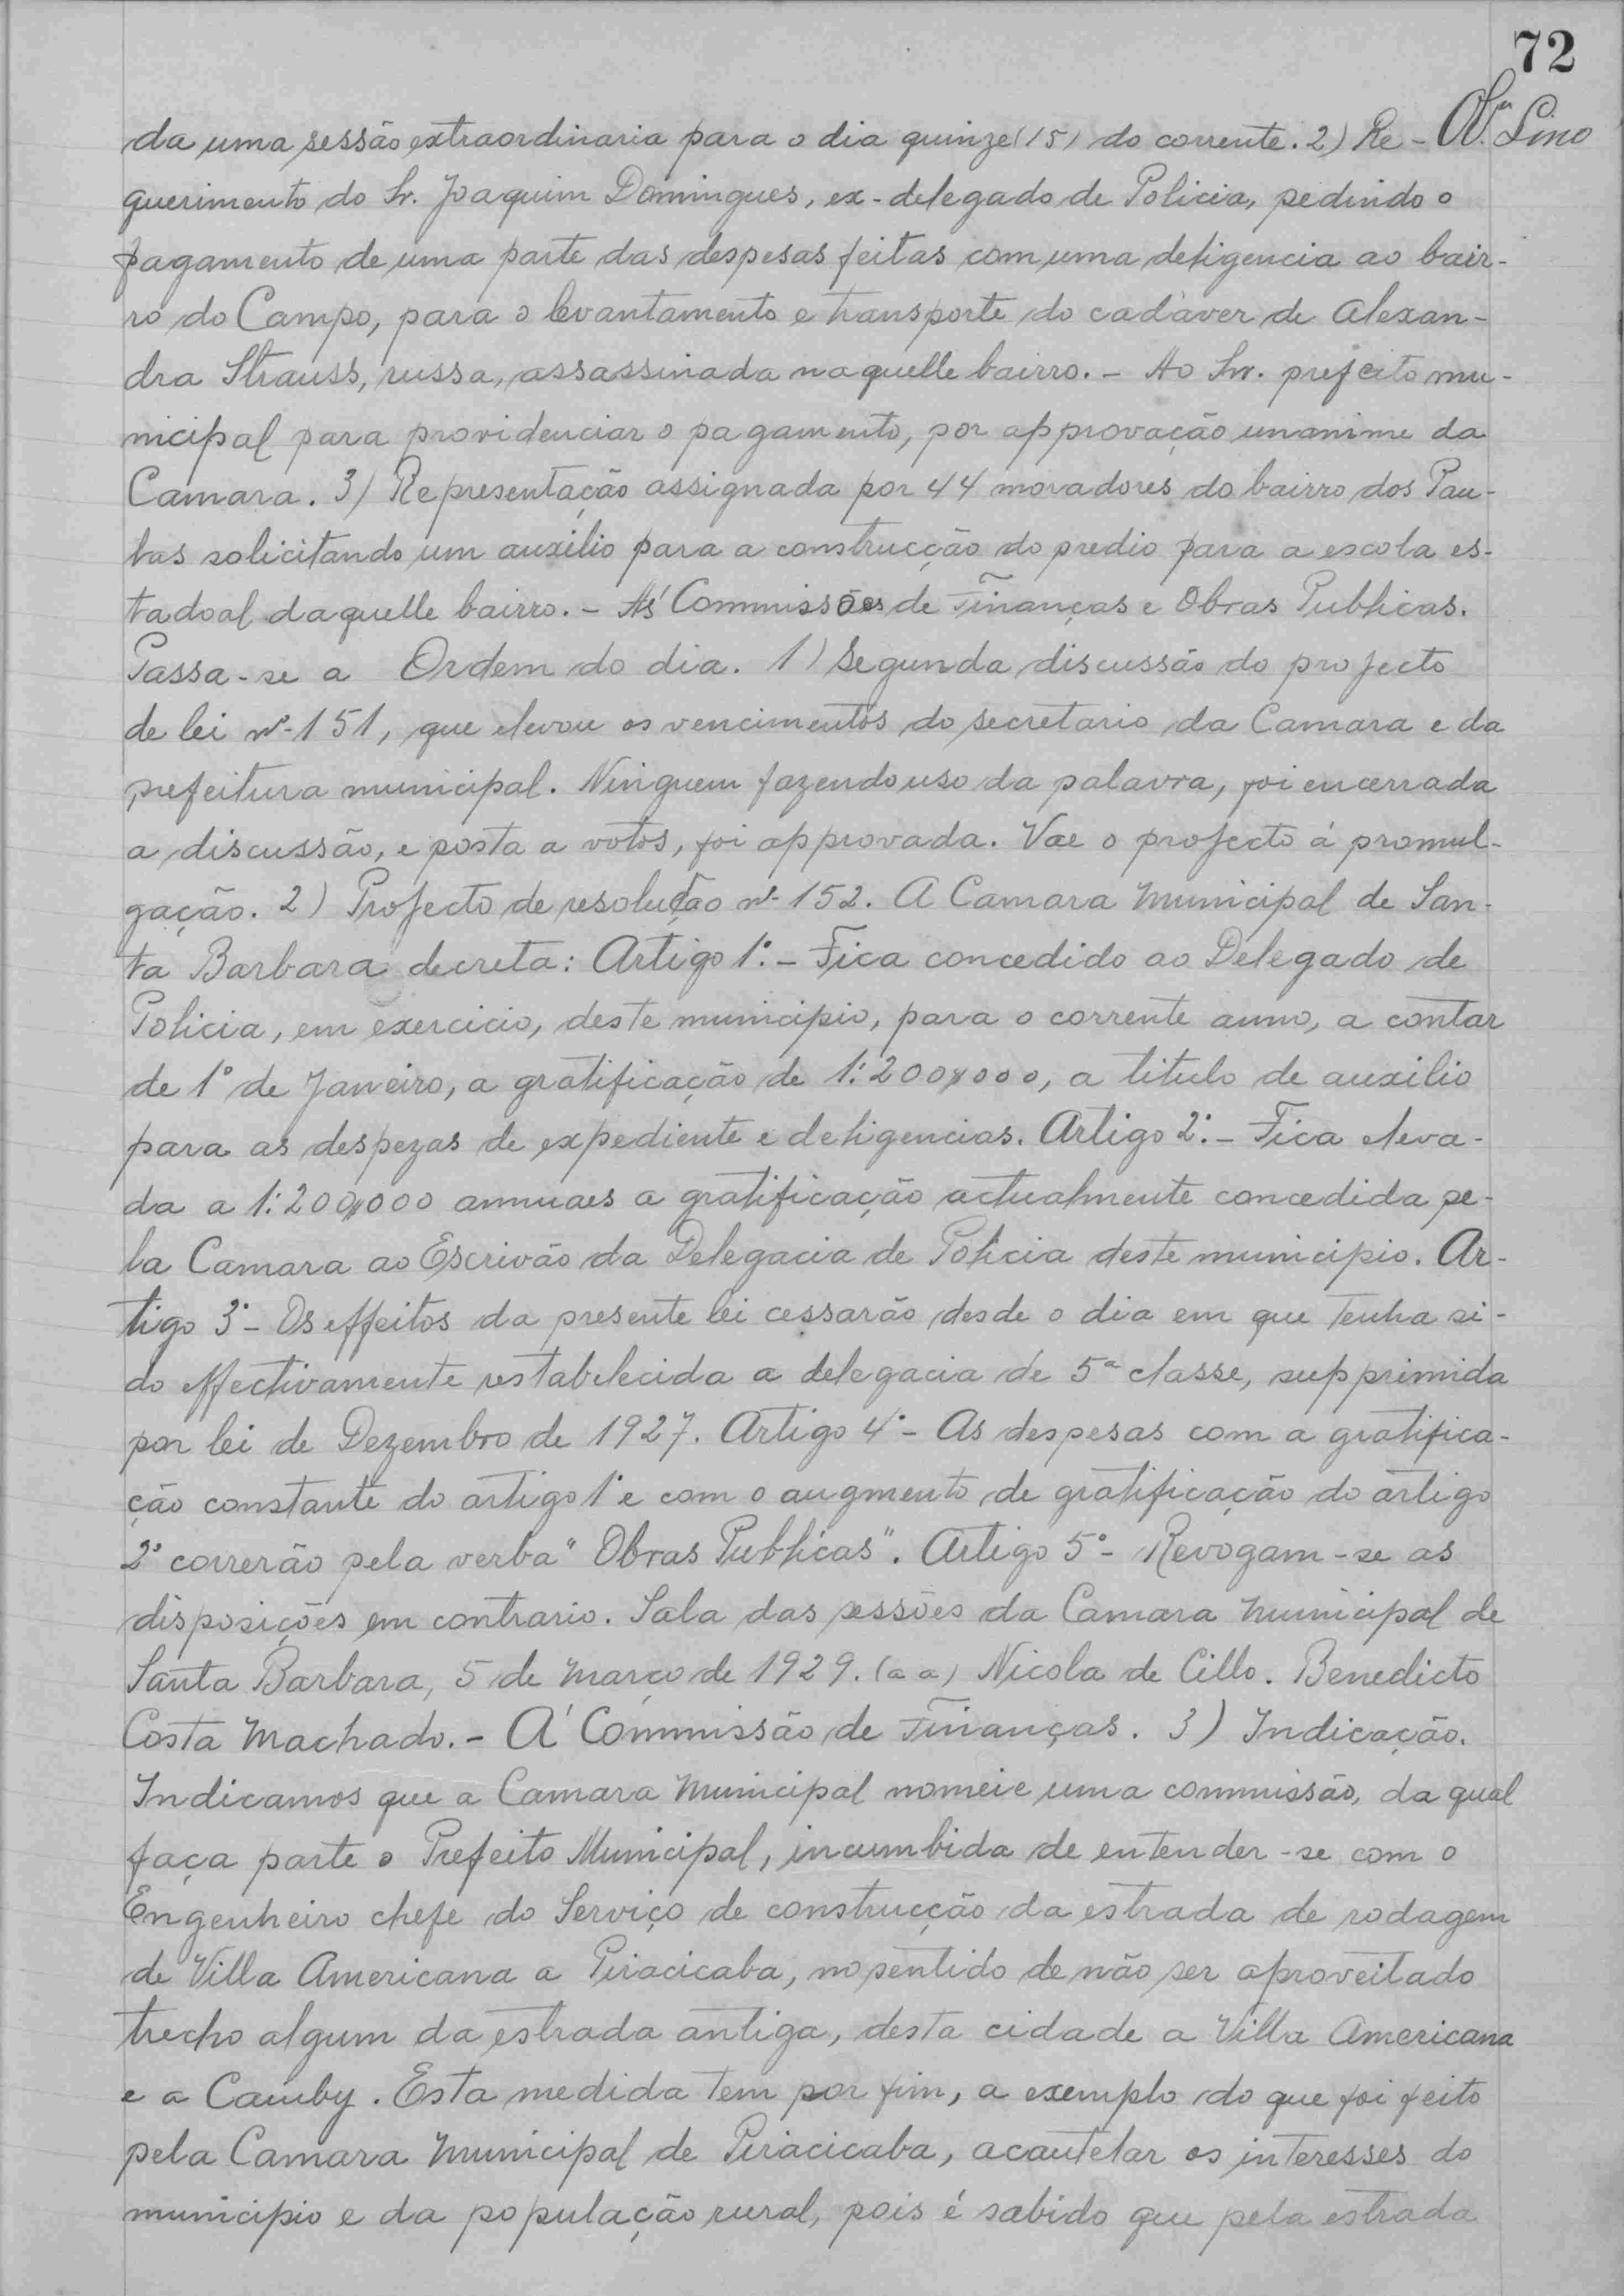 72
da uma sessão extraordinaria para o dia quinze (15) do corrente. 2) Re-
Lino
querimento do Sr. Joaquim Domingues, ex-delegado de Policia, pedindo o
pagamento de uma parte das despesas feitas com uma deligencia ao bair-
ro do Campo, para o levantamento e transporte do cadáver de Alexan-
dra Strauss, russa, assassinada naquelle bairro. - Ao Snr. prefeito mu-
nicipal para providenciar o pagamento, por approvação unanime da
Camara. 3) Representação assignada por 44 moradores do bairro dos Pau-
las solicitando um auxilio para a construcção do predio para a escola es-
tadoal daquelle bairro. - Ás Commissões de Finanças e Obras Publicas.
Passa-se a Ordem do dia. 1) Segunda discussão do projecto
de lei nº 151, que elevou os vencimentos do secretario da Camara e da
prefeitura municipal. Ninguem fazendo uso da palavra, foi encerrada
a discussão, e posta a votos, foi approvada. Vae o projecto á promul-
gação. 2) Projecto de resolução nº 152. A Camara Municipal de San-
ta Barbara decreta: Artigo 1º. - Fica concedido ao Delegado de
Policia, em exercicio, deste municipio, para o corrente anno, a contar
de 1º de Janeiro, a gratificação de 1:200$000, a titulo de auxilio
para as despezas de expediente e deligencias. Artigo 2º. - Fica eleva-
da a 1:200$000 annuaes a gratificação actualmente concedida pe-
la Camara ao Escrivão da Delegacia de Policia deste municipio. Ar-
tigo 3º - Os effeitos da presente lei cessarão desde o dia em que tenha si-
do effectivamente restabelecida a delegacia de 5ª classe, supprimida
por lei de Dezembro de 1927. Artigo 4º - As despesas com a gratifica-
ção constante do artigo 1º e com o augmento de gratificação do artigo
2º correrão pela verba "Obras Publicas". Artigo 5º - Revogam-se as
disposições em contrario. Sala das sessões da Camara Municipal de
Santa Barbara, 5 de Março de 1929. (a a) Nicola de Cillo. Benedicto
Costa Machado. - Á Commissão de Finanças. 3) Indicação.
Indicamos que a Camara Municipal nomeie uma commissão, da qual
faça parte o Prefeito Municipal, incumbida de entender-se com o
Engenheiro chefe do Serviço de construcção da estrada de rodagem
de Villa Americana a Piracicaba, no sentido de não ser aproveitado
trecho algum da estrada antiga, desta cidade a Villa Americana
e a Cauby. Esta medida tem por fim, a exemplo do que foi feito
pela Camara Municipal de Piracicaba, acautelar os interesses do
municipio e da população rural, pois é sabido que pela estrada